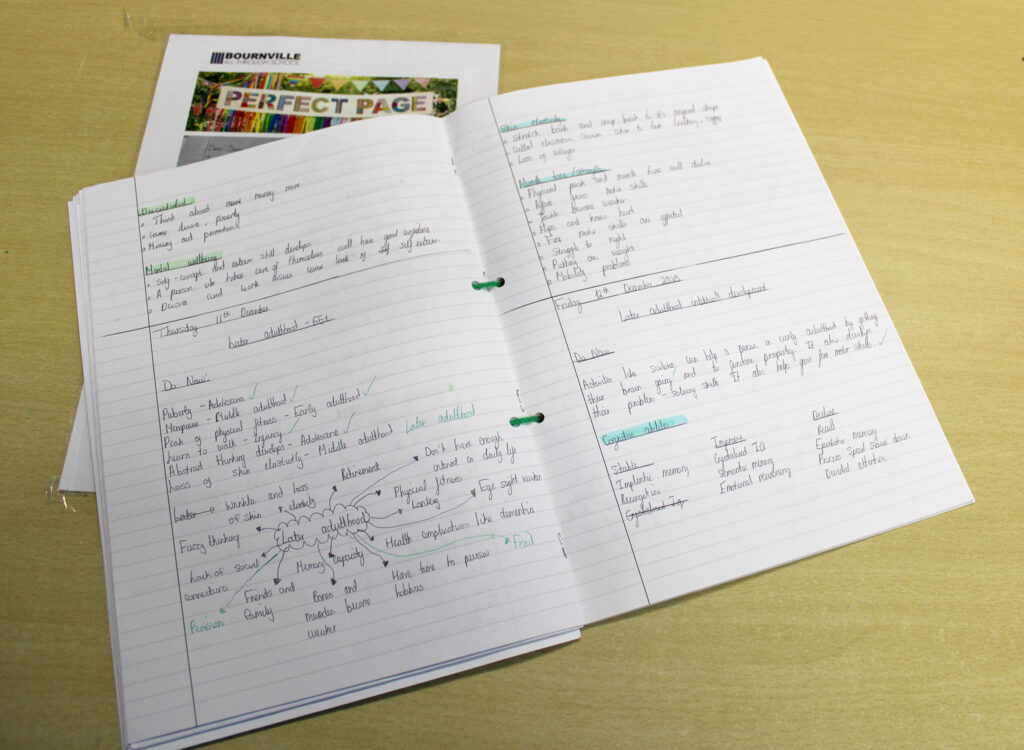 BOURNVILLE
ALL THROUGH SCHOOL
PERFECT PAGE
Think about more money more
Cause divorce - poverty
Missing out promotions
Mental wellbeing
Self-concept and esteem still develops
A person who takes care of themselves will have good
Divorce and work issues cause lack of self self esteem.
Thursday 11th December
Later adulthood - 65+
Do Now:
Puberty - Adolescence ✓
Menopause - Middle adulthood ✓
Peak of physical fitness - Early adulthood ✓
Learn to walk - Infancy ✓
Abstract thinking develops - Adolescence ✓
Loss of skin elasticity - Middle adulthood Later adulthood
Retirement
Don't have enough
interest in daily life
Later → Wrinkles and loss
of skin elasticity
Physical fitness
Lowering
Eye sight
Fuzzy thinking
Later adulthood
Health complications like dementia
Frail
Lack of social
connections
Memory capacity
Friends and
Family
Bones and
muscles become
weaker
Have time to pursue
hobbies
Pension
Skin elasticity
Stretch back and snap back to its original shape
Called elastosis causes skin to look leathery, saggy
Loss of collagen
Muscle tone/strength
Physical peak and muscle tone will decline
Affect gross motor skills
Become weaker
Hips and knees hurt
Fine motor skills are affected
Struggle to
Putting on weight
Mobility problems
Friday 12th December 2025
Later adulthood intellectual development
Do Now:
Activities like sudoku can help a person in early adulthood by getting
their brain going and to function properly. It also develops
their problem-solving skills. It also helps your fine motor skills. ✓
Cognitive abilities
Stable
Implantic memory
Recognition
Crystalised IQ
Improve
Crystalised IQ
Semantic memory
Emotional reasoning
Decline
Recall
Episodic memory
Process speed slows down
Divided attention